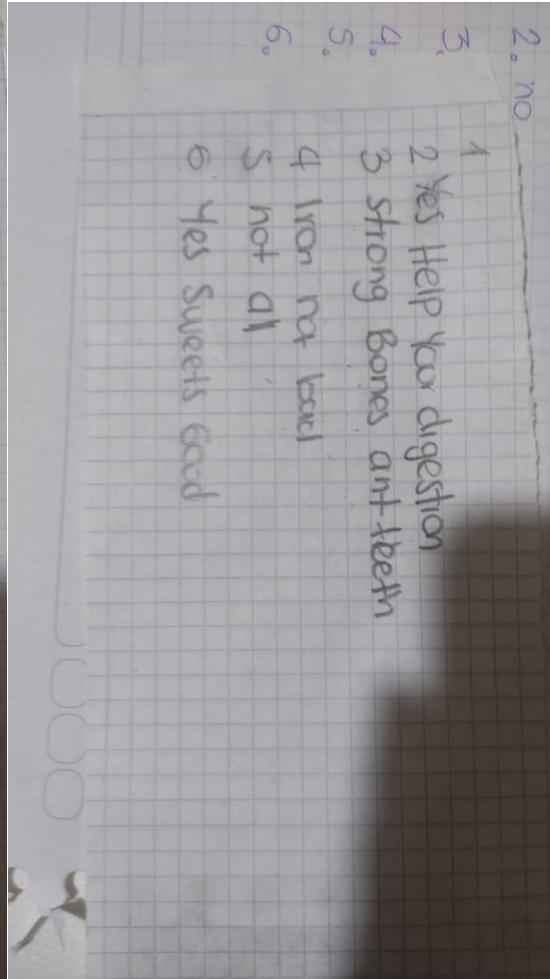 2. no
3.
4.
5.
6.
1
2 Yes Help Your digestion
3 strong Bones ant teeth
4 Iron not bad
5 not all
6 Yes Sweets Good